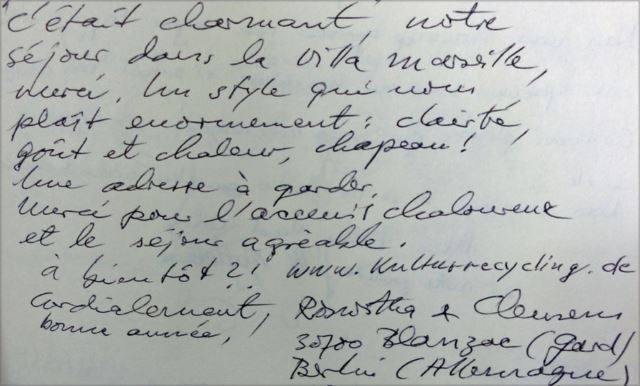 C'était charmant, notre
séjour dans la Villa Marseille,
merci. Un style qui nous
plaît enormement : clarté,
goût et chaleur, chapeau !
Une adresse à garder.
Merci pour l'acceuil chaloureux
et le séjour agréable.
à bientôt ?! www.Kulturrecycling.de
Cordialement, Roswitha + Clemens
bonne année, 30700 Blanzac (Gard)
Berlin (Allemagne)